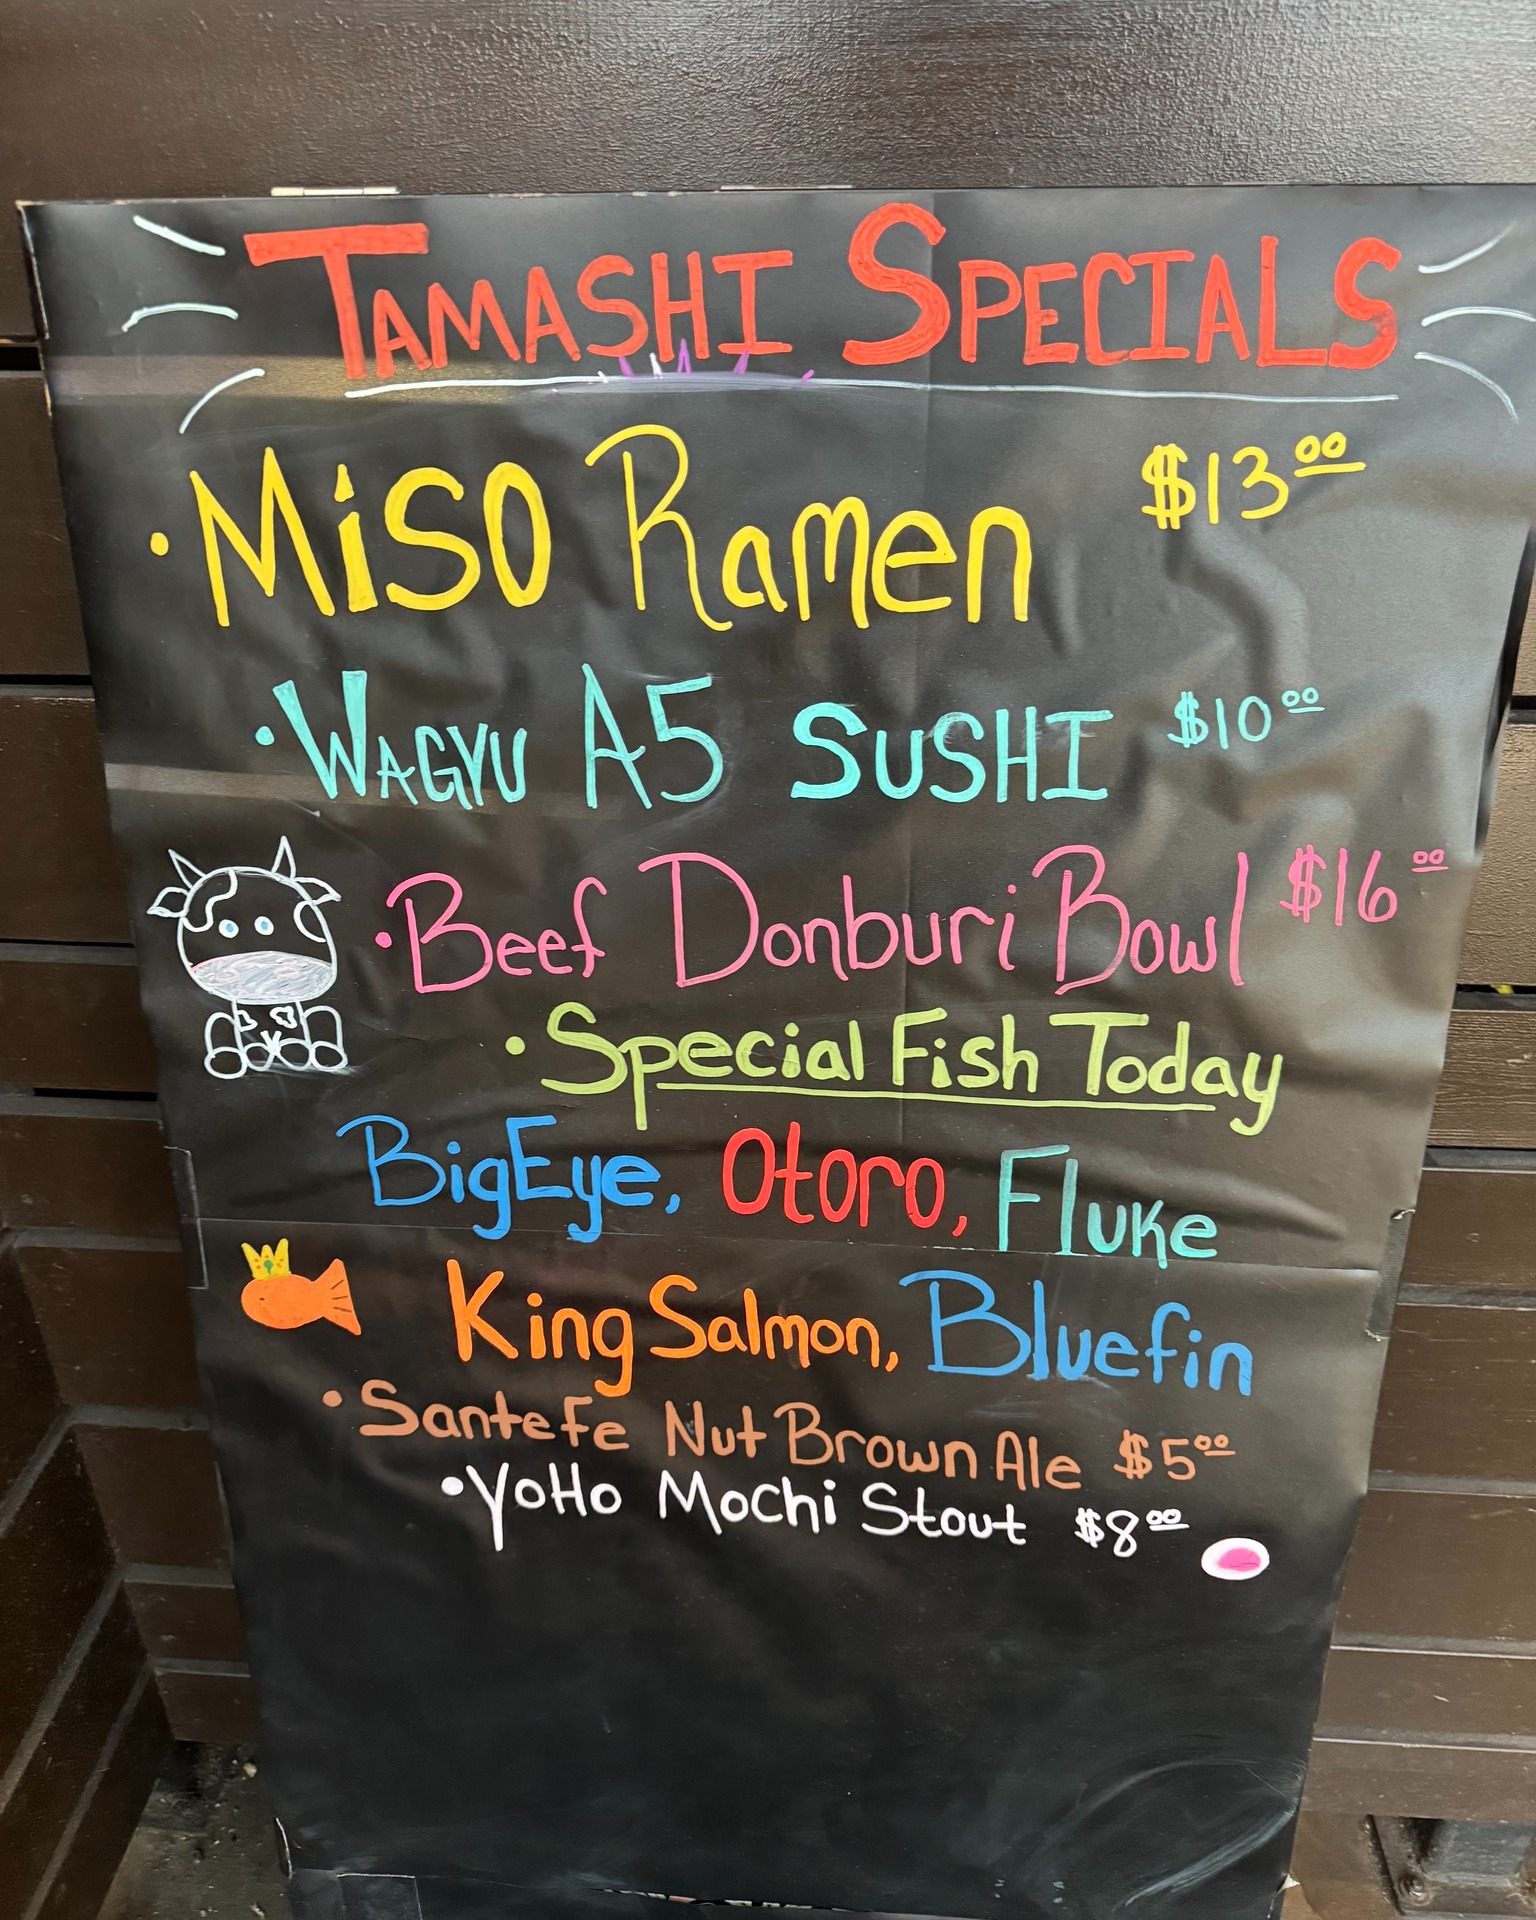 TAMASHI SPECIALS
• MiSO Ramen $13.00
• WAGYU A5 SUSHI $10.00
• Beef Donburi Bowl $16.00
• Special Fish Today
BigEye, Otoro, Fluke
King Salmon, Bluefin
• Sante Fe Nut Brown Ale $5.00
• YoHo Mochi Stout $8.00